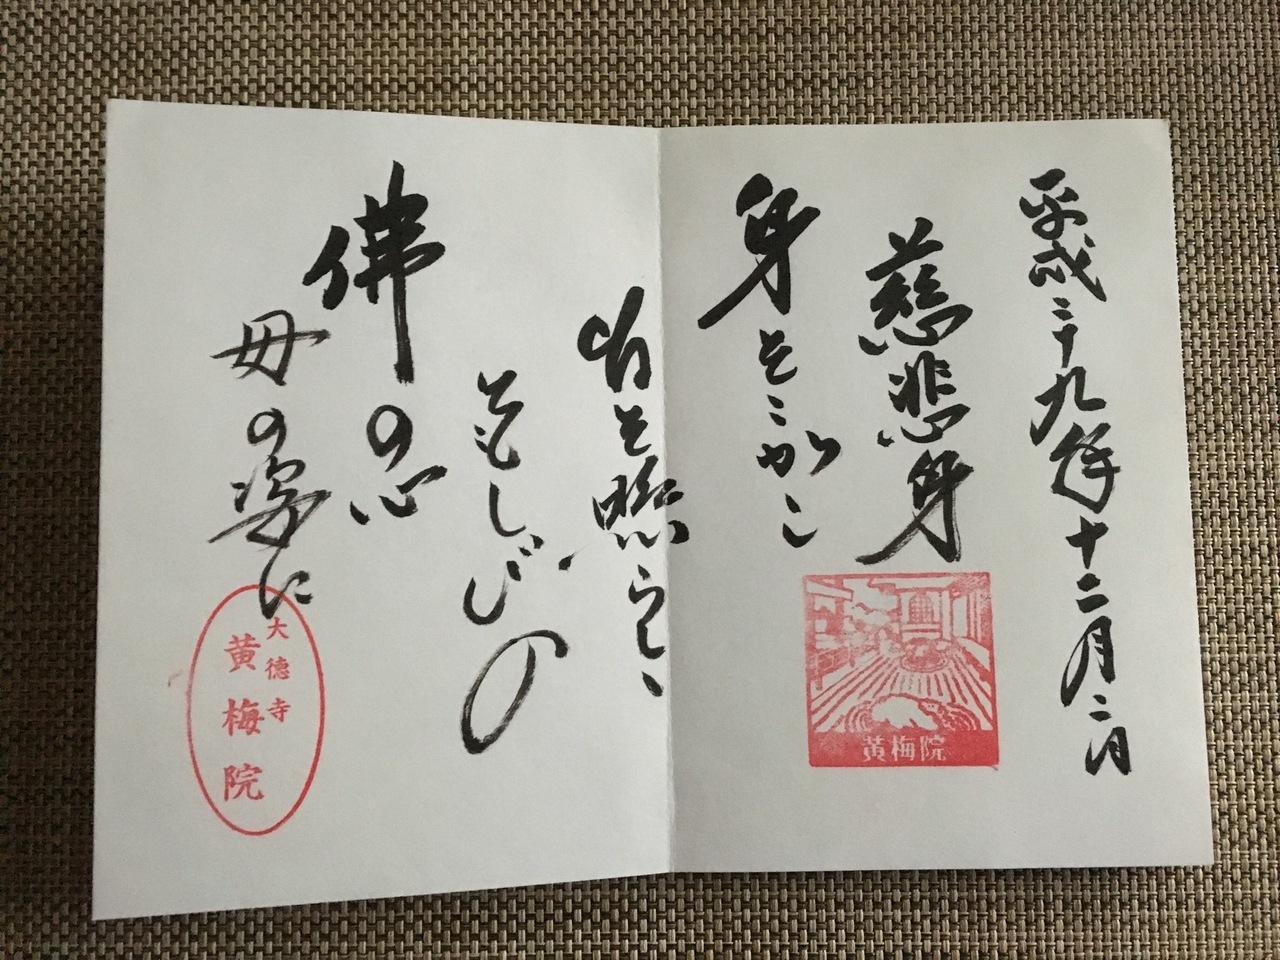 平成二十九年十二月二日
慈悲身
身をこがし
を照らし
ともしびの
佛の心
母の姿に
黄梅院
大徳寺
黄梅院